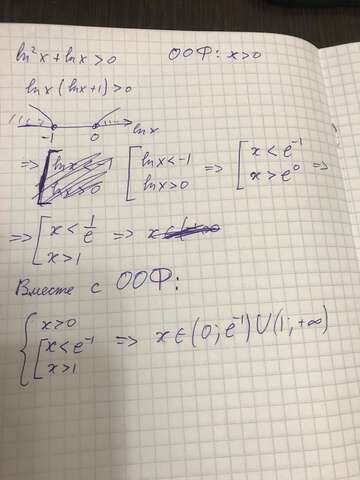 ln²x + lnx > 0 ООФ: x>0
lnx (lnx+1) > 0
-1 0 lnx
=> [ lnx < -1 lnx > 0 => [ x < e⁻¹ x > e⁰ =>
=> [ x < 1/e x > 1 => x ∈
Вместе с ООФ:
{ x>0 [ x<e⁻¹ x>1 => x ∈ (0; e⁻¹) U (1; +∞)